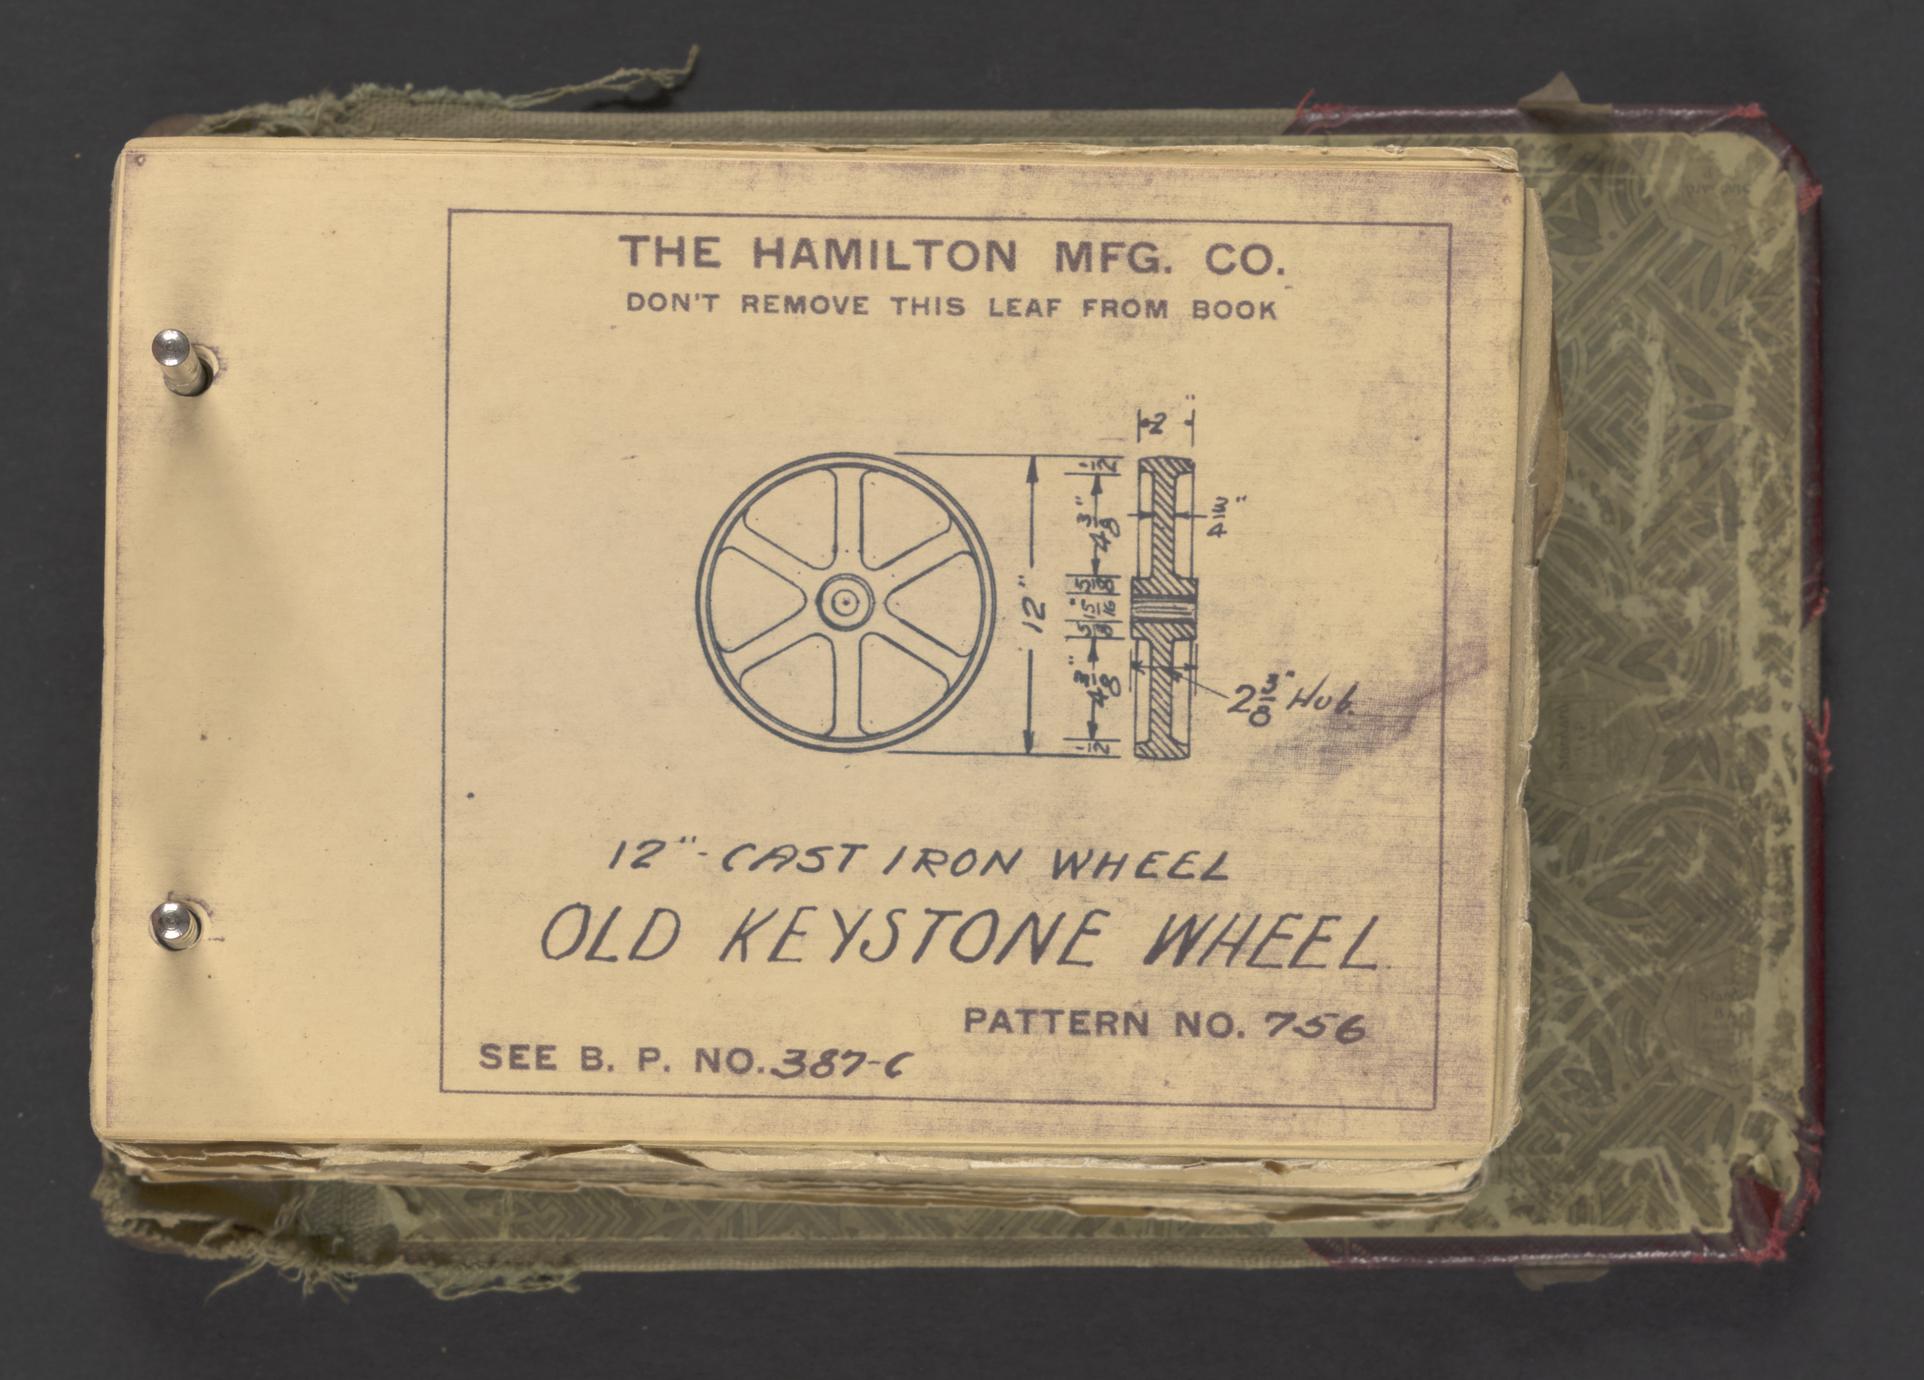 THE HAMILTON MFG. CO.
DON'T REMOVE THIS LEAF FROM BOOK
2"
1/2
4 3/8"
3/4"
5/8
15/16"
5/8
12"
4 3/8"
2 3/8" Hub.
1/2
12"-CAST IRON WHEEL
OLD KEYSTONE WHEEL.
PATTERN NO. 756
SEE B. P. NO. 387-C